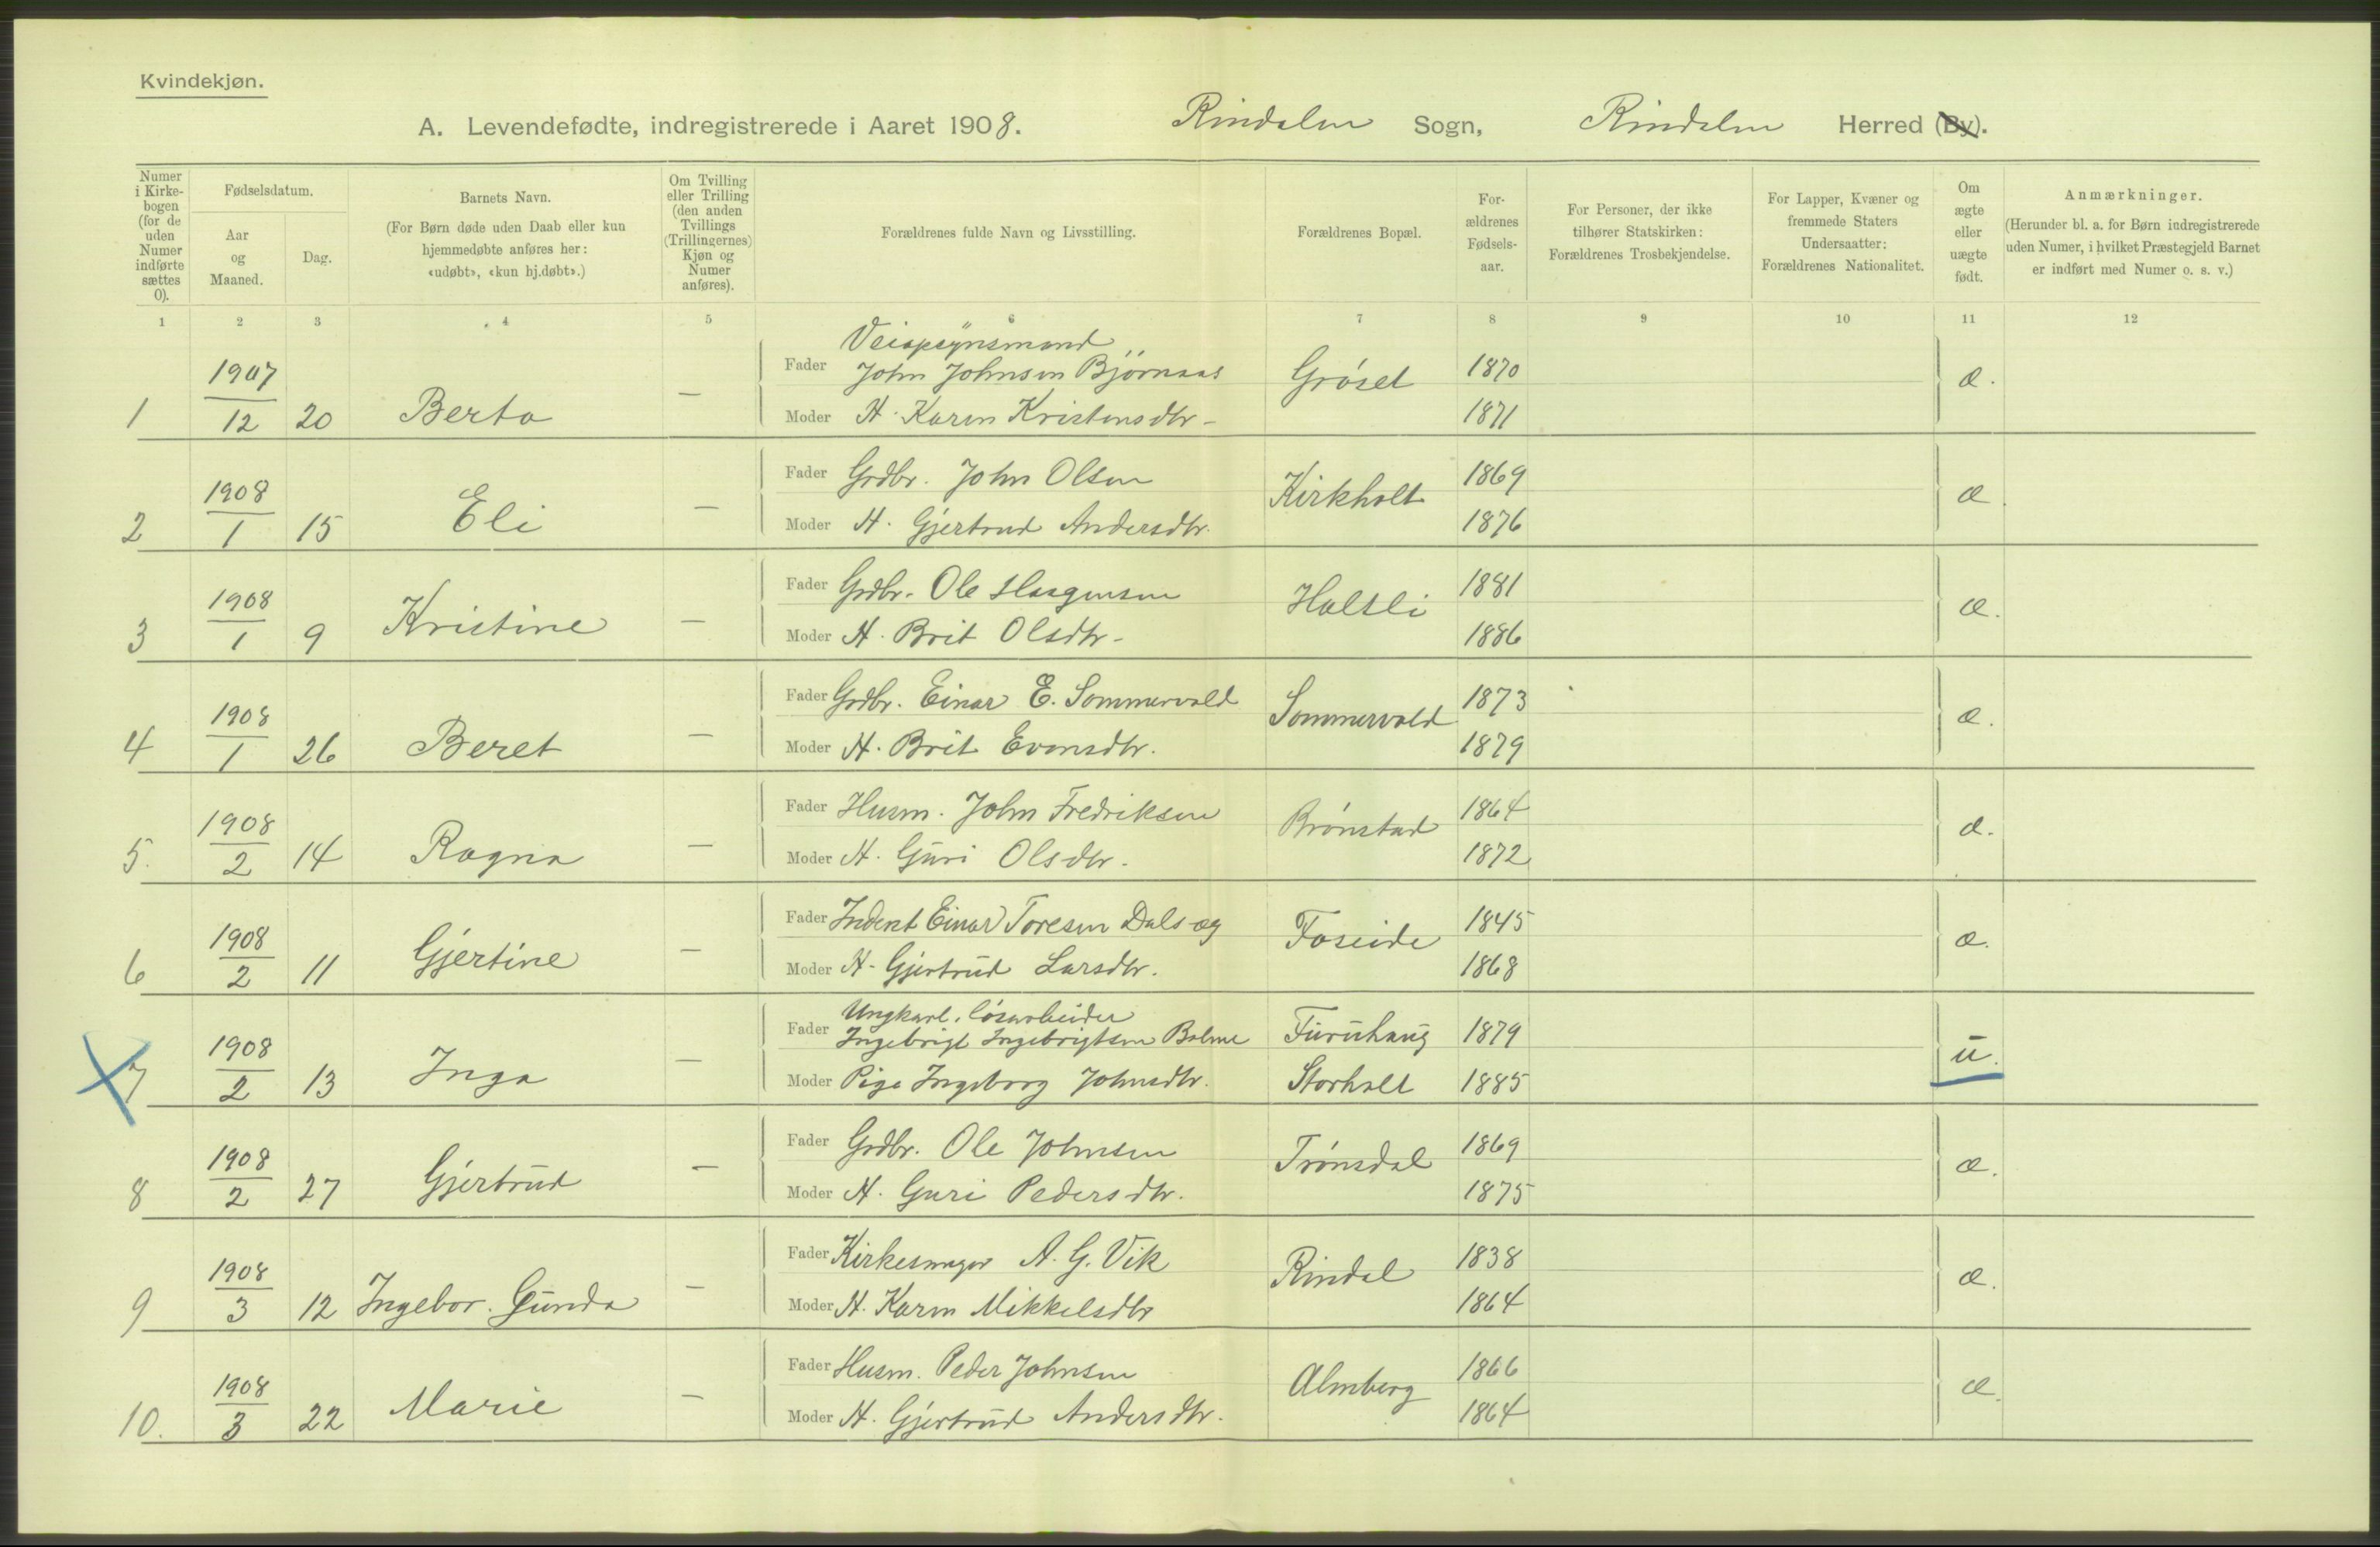 Kvindekjøn.
A. Levendefødte, indregistrerede i Aaret 1908. Rindalen Sogn, Rindalen Herred (By).
Numer i Kirke-bogen (for de uden Numer indførte sættes 0).
Fødselsdatum.
Aar og Maaned.
Dag.
Barnets Navn.
(For Børn døde uden Daab eller kun hjemmedøbte anføres her: «udøbt», «kun hj.døbt».)
Om Tvilling eller Trilling (den anden Tvillings (Trillingernes) Kjøn og Numer anføres).
Forældrenes fulde Navn og Livsstilling.
Forældrenes Bopæl.
For-ældrenes Fødsels-aar.
For Personer, der ikke tilhører Statskirken: Forældrenes Trosbekjendelse.
For Lapper, Kvæner og fremmede Staters Undersaatter: Forældrenes Nationalitet.
Om ægte eller uægte født.
Anmærkninger.
(Herunder bl. a. for Børn indregistrerede uden Numer, i hvilket Præstegjeld Barnet er indført med Numer o. s. v.)
1 2 3 4 5 6 7 8 9 10 11 12
1 1907 12 20 Berta —
Fader John Johnsen Bjørnaas Grøset 1870 æ.
Moder H. Karen Kristensdtr - 1871
2 1908 1 15 Eli —
Fader Grdbr. John Olsen Kirkholt 1869 æ.
Moder H. Gjertrud Andersdtr. 1876
3 1908 1 9 Kristine —
Fader Grdbr. Ole Haagensen Holtli 1881 æ.
Moder H. Brit Olsdtr - 1886
4 1908 1 26 Beret —
Fader Grdbr. Einar E. Sommervold Sommervold 1873 æ.
Moder H. Brit Evensdtr. 1879
5. 1908 2 14 Ragna —
Fader Husm. John Fredriksen Brønstad 1864 æ.
Moder H. Guri Olsdtr. 1872
6 1908 2 11 Gjertine —
Fader Inderst Einar Toresen Dals-eg Foseide 1845 æ.
Moder H. Gjertrud Larsdtr. 1868
7 1908 2 13 Inga —
Fader Ungkarl, løsarbeider
Ingebrigt Ingebrigtsen Bolme Furuhaug 1879 u.
Moder Pige Ingeborg Johnsdtr. Storholt 1885
8 1908 2 27 Gjertrud —
Fader Grdbr. Ole Johnsen Trønsdal 1869 æ.
Moder H. Guri Pedersdtr. 1875
9 1908 3 12 Ingebor. Gunda —
Fader Kirkesanger A. G. Vik Rindal 1838 æ.
Moder H. Karen Mikkelsdtr 1864
10. 1908 3 22 Marie —
Fader Husm. Peder Johnsen Almberg 1866 æ
Moder H. Gjertrud Andersdtr. 1864